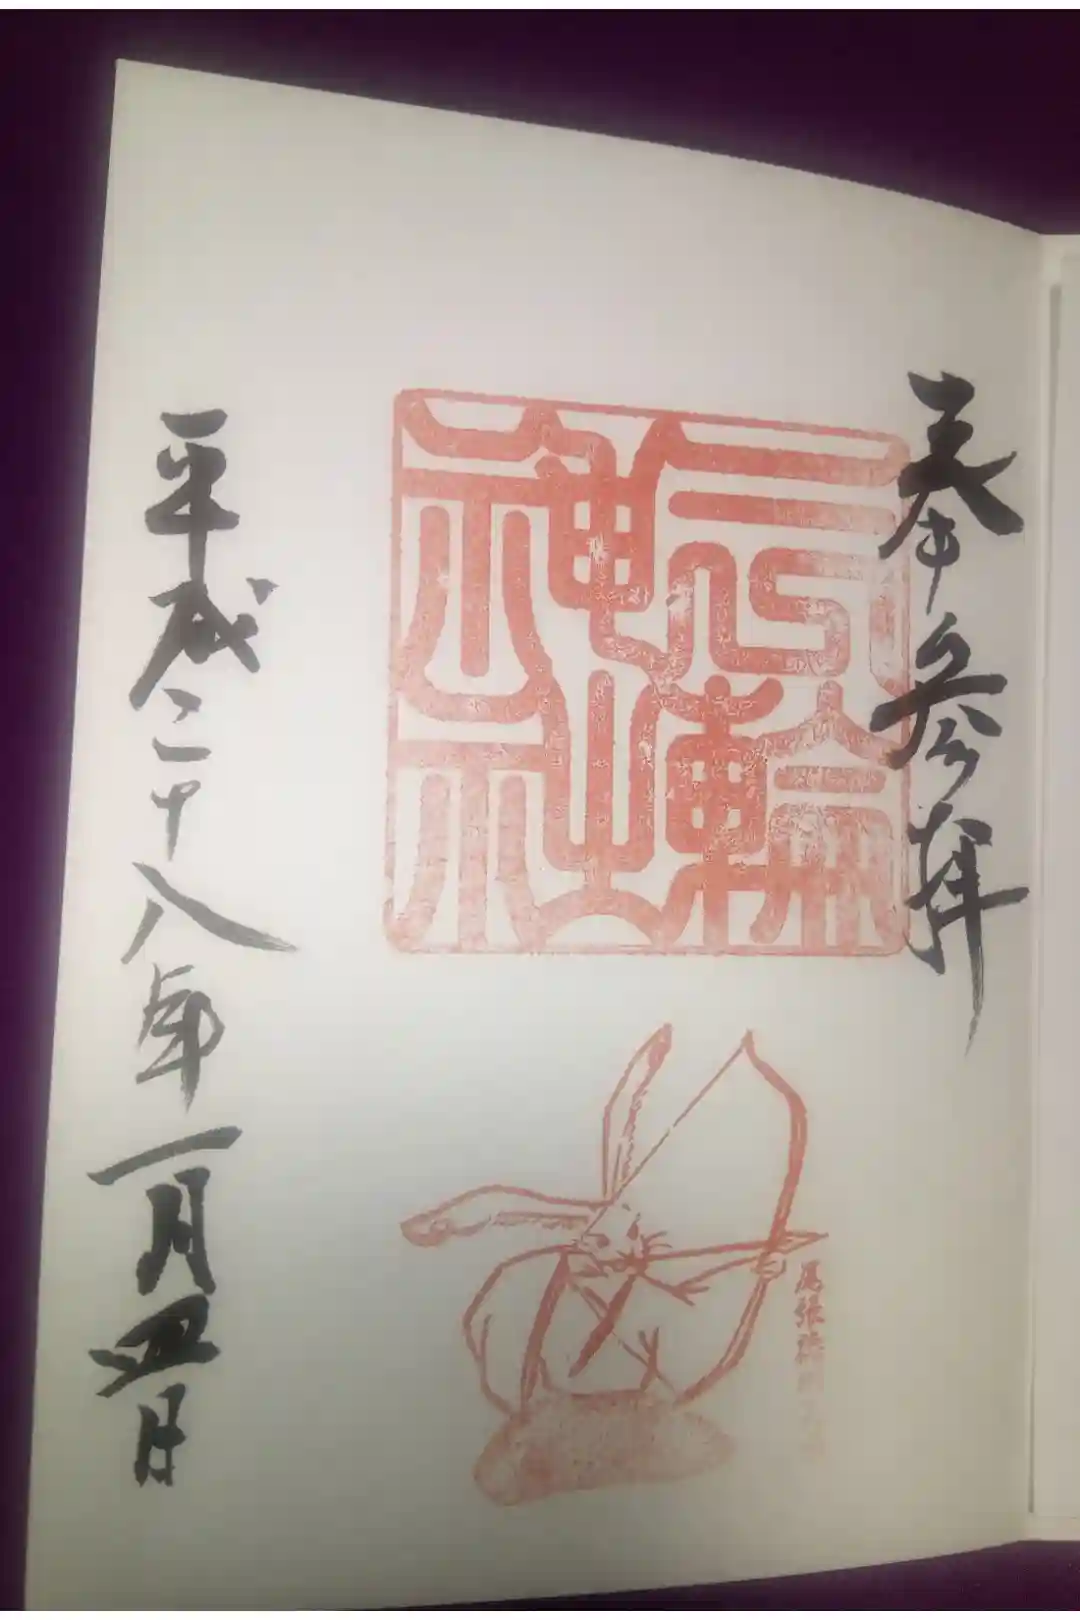 奉拝参拝
三輪神社
尾張徳
平成二十八年一月五日